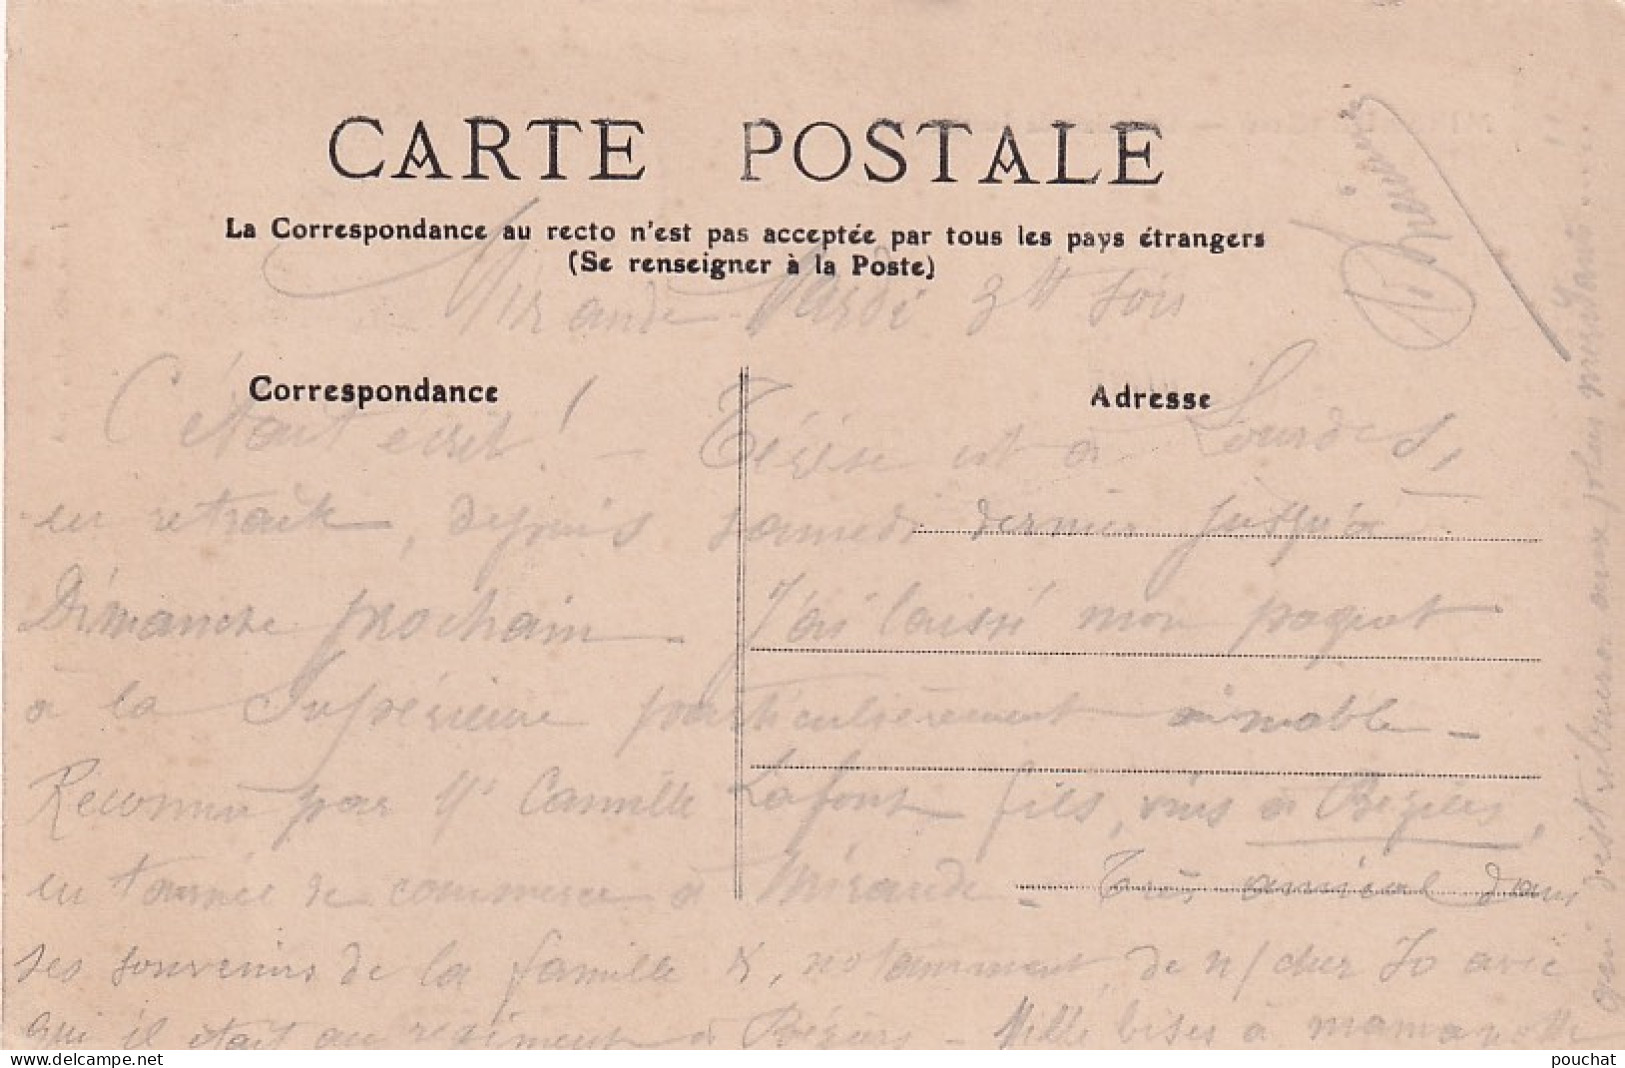 CARTE POSTALE
La Correspondance au recto n'est pas acceptée par tous les pays étrangers
(Se renseigner à la Poste)
Mirande Mardi 3 soir
Correspondance
Adresse
C'était écrit ! - Térèse est à Lourdes,
en retraite, depuis samedi dernier jusqu'à
Dimanche prochain - J'ai laissé mon paquet
à la Supérieure particulièrement aimable -
Reconnu par Mr Camille Lafont fils, vins à Béziers,
en tournée de commerce à Mirande - Très amical dans
ses souvenirs de la famille X, notamment de n/ cher Jo avec
qui il était au régiment à Béziers - Mille bises à maman
qui distribuera aux plus
pouchat
Delcampe.net